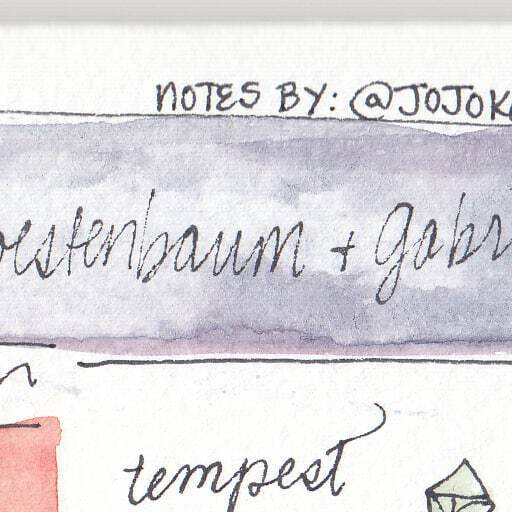 NOTES BY: @JOJOK
oestenbaum + Gabri
tempest